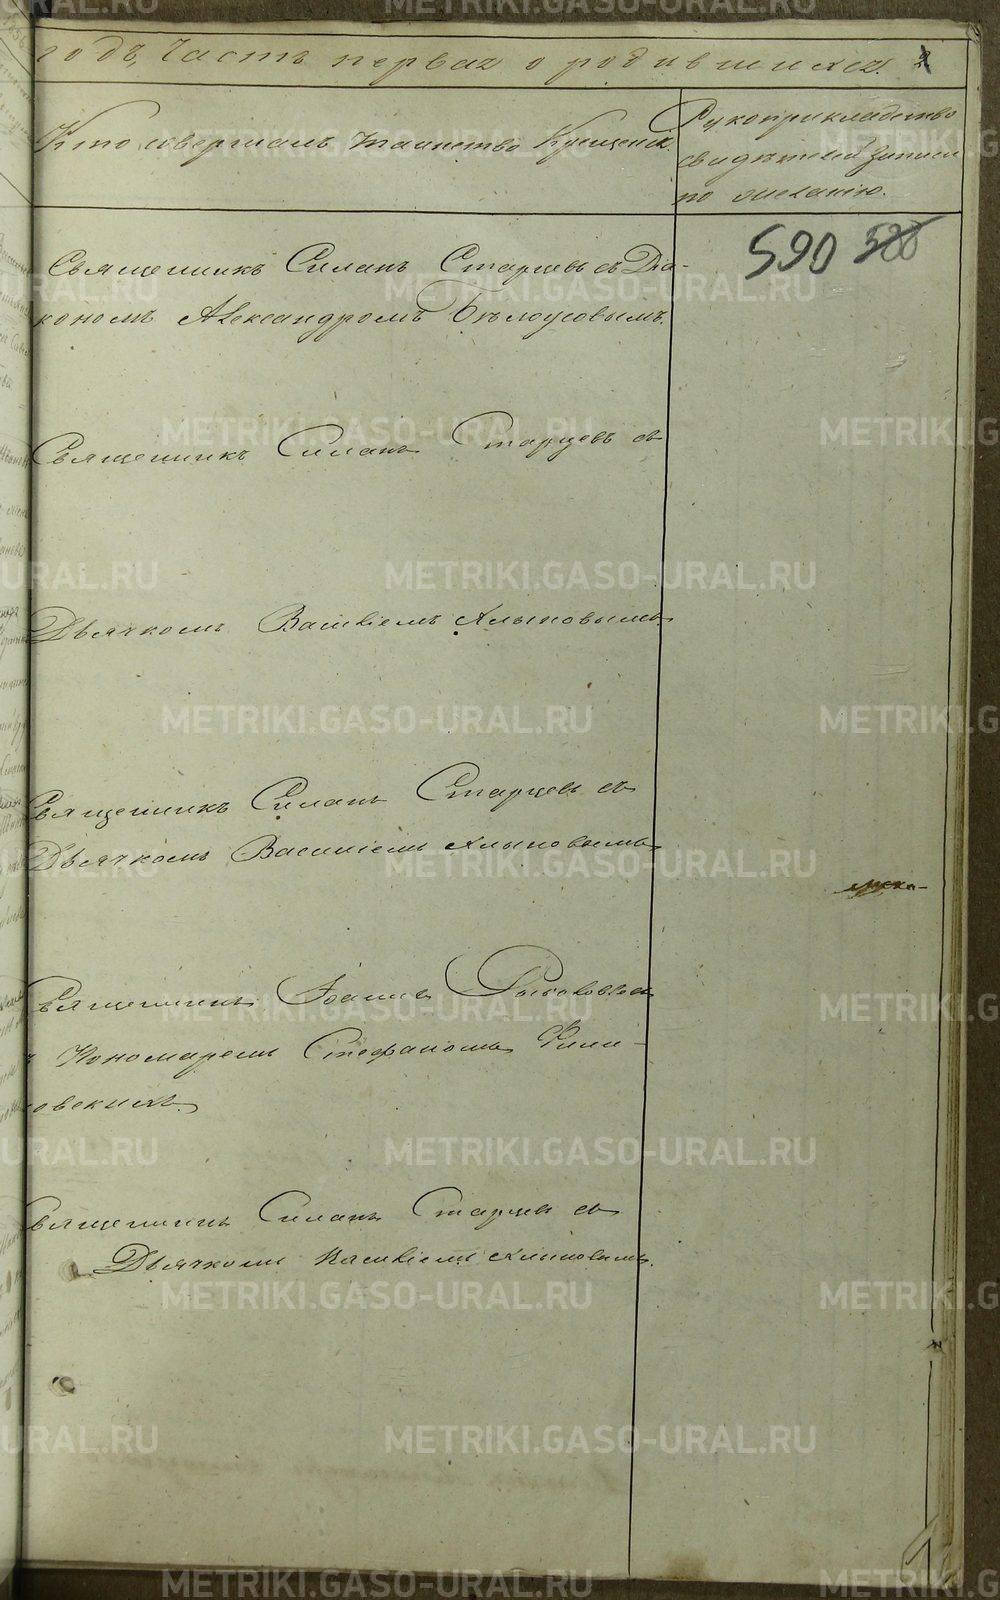 годъ, Часть первая о родившихся. 2
Кто совершалъ таинство Крещенія.
Рукоприкладство
свидѣтелей записи
по желанію.
590 580
Священникъ Силанъ Старцевъ съ Діа-
кономъ Александромъ Бѣлоусовымъ.
Священникъ Силанъ Старцевъ съ
Дьячкомъ Василіемъ Хлыновымъ
Священникъ Силанъ Старцевъ съ
Дьячкомъ Василіемъ Хлыновымъ
Священникъ Іоаннъ
Пономаремъ Стефаномъ
овскимъ.
Священникъ Силанъ Старцевъ съ
Дьячкомъ Василіемъ Хлыновымъ.
METRIKI.GASO-URAL.RU